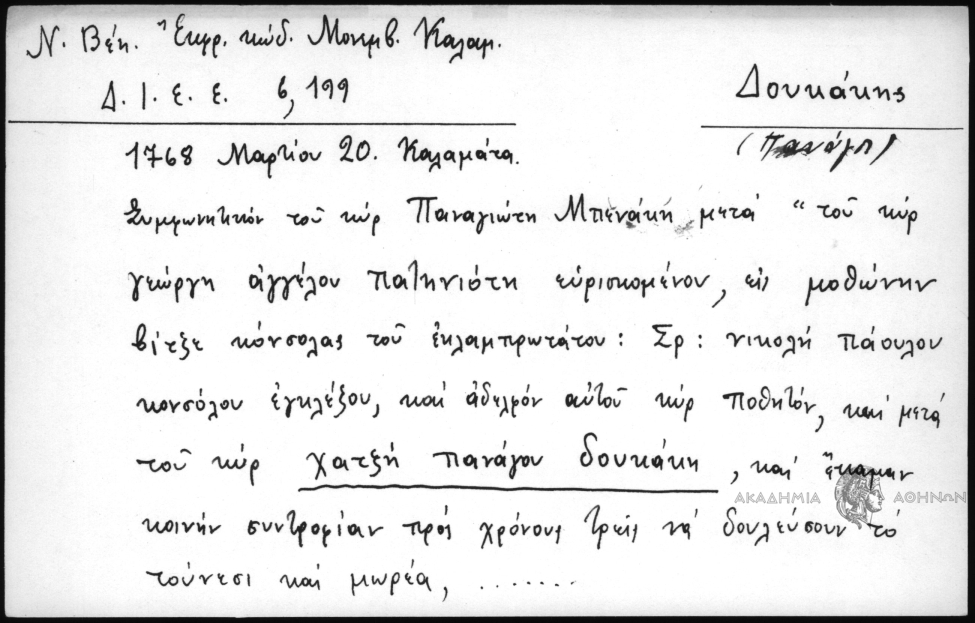 Ν. Βέη. Ἐκφρ. κώδ. Μονεμβ. Καλαμ.
Δ. Ι. Ε. Ε. 6, 199
Δουκάκης
(Πανάγο)
1768 Μαρτίου 20. Καλαμάτα.
Συμφωνητικόν τοῦ κύρ Παναγιώτη Μπενάκη μετά "τοῦ κύρ
γεώργη ἀγγέλου πατηνιότη εὑρισκομένου, εἰς μοθώνην
βίτζε κόνσολας τοῦ ἐκλαμπρωτάτου: Σρ: νικολῆ πάουλου
κονσόλου ἐγκλέζου, καί ἀδελφόν αὐτοῦ κύρ ποθητόν, καί μετά
τοῦ κύρ χατζῆ πανάγου δουκάκη, καί ἔκαμαν
ΑΚΑΔΗΜΙΑ ΑΘΗΝΩΝ
κοινήν συντροφίαν πρός χρόνους τρεῖς νά δουλεύσουν τό
τούνεσι καί μωρέα, ........